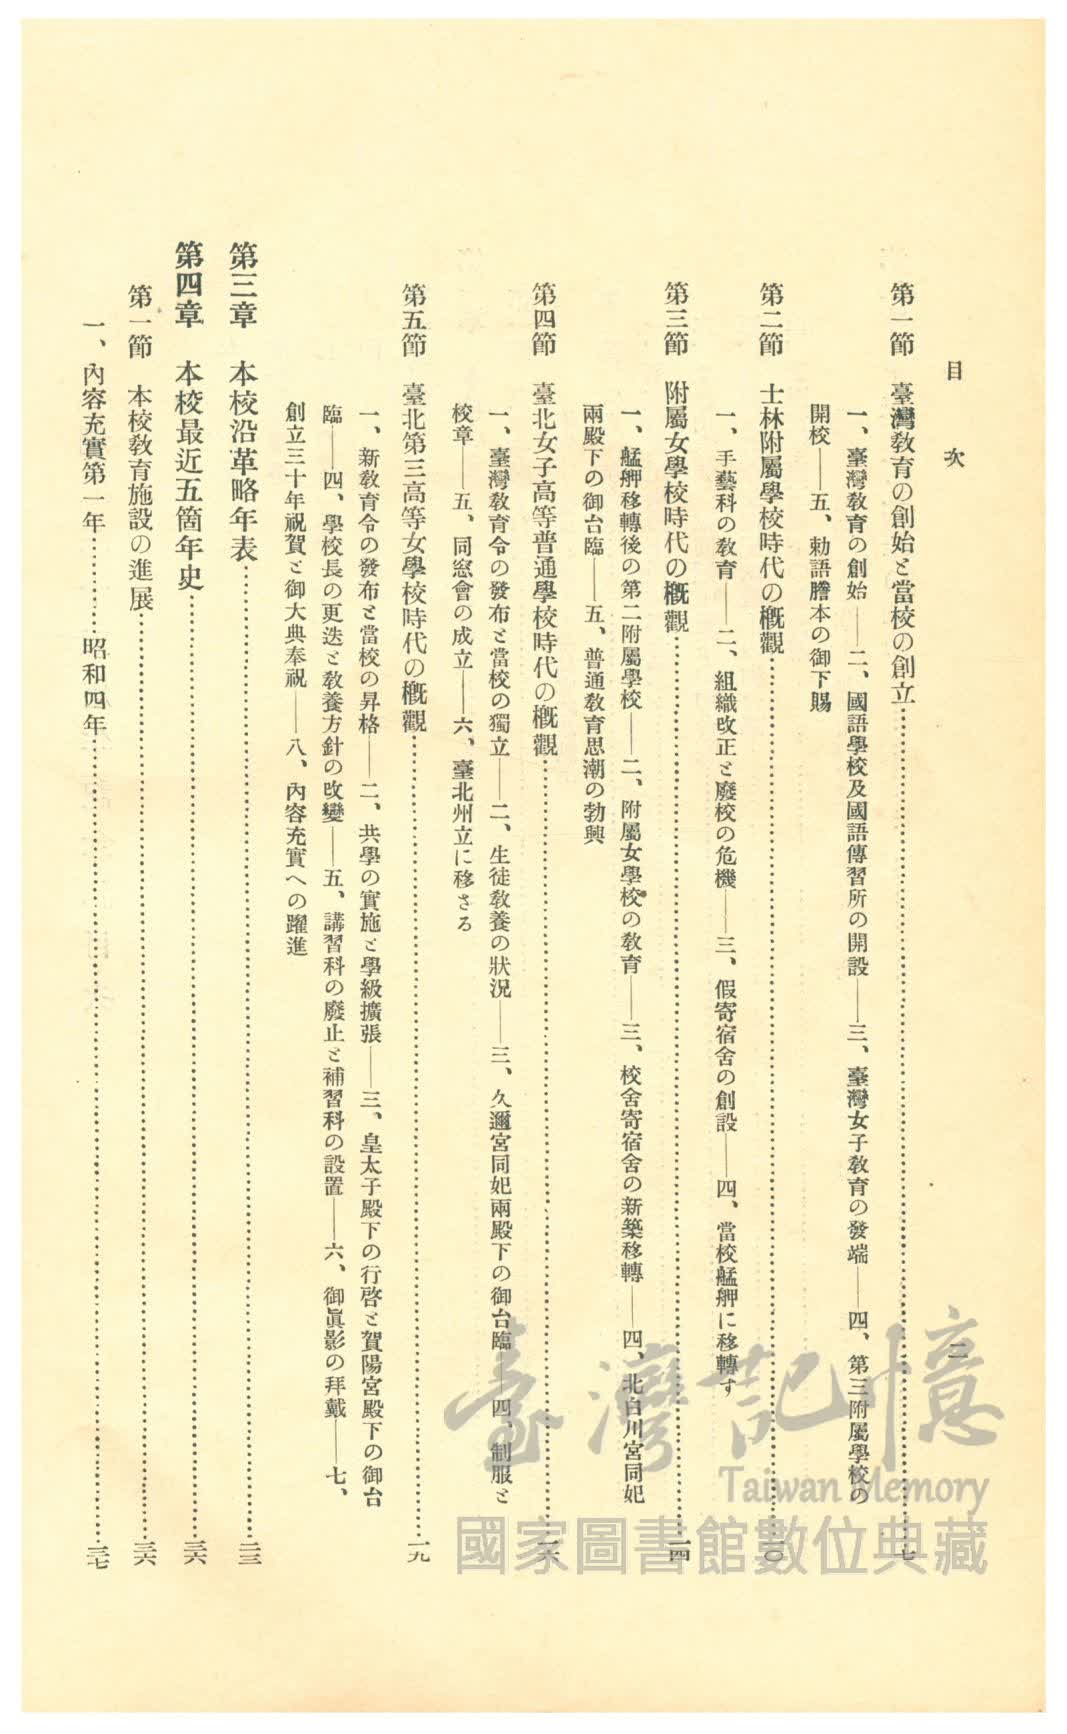 目次
二
第一節　臺灣教育の創始と當校の創立……七
一、臺灣教育の創始——二、國語學校及國語傳習所の開設——三、臺灣女子教育の發端——四、第三附屬學校の
開校——五、勅語謄本の御下賜
第二節　士林附屬學校時代の概觀……一〇
一、手藝科の教育——二、組織改正と廢校の危機——三、假寄宿舍の創設——四、當校艋舺に移轉す
第三節　附屬女學校時代の概觀……一四
一、艋舺移轉後の第二附屬學校——二、附屬女學校の教育——三、校舍寄宿舍の新築移轉——四、北白川宮同妃
兩殿下の御台臨——五、普通教育思潮の勃興
第四節　臺北女子高等普通學校時代の概觀……一六
一、臺灣教育令の發布と當校の獨立——二、生徒教養の狀況——三、久邇宮同妃兩殿下の御台臨——四、制服と
校章——五、同窓會の成立——六、臺北州立に移さる
第五節　臺北第三高等女學校時代の概觀……一九
一、新教育令の發布と當校の昇格——二、共學の實施と學級擴張——三、皇太子殿下の行啓と賀陽宮殿下の御台
臨——四、學校長の更迭と教養方針の改變——五、講習科の廢止と補習科の設置——六、御眞影の拜戴——七、
創立三十年祝賀と御大典奉祝——八、內容充實への躍進
第三章　本校沿革略年表……二三
第四章　本校最近五箇年史……三六
第一節　本校教育施設の進展……三六
一、內容充實第一年……昭和四年……三七
臺灣記憶
Taiwan Memory
國家圖書館數位典藏